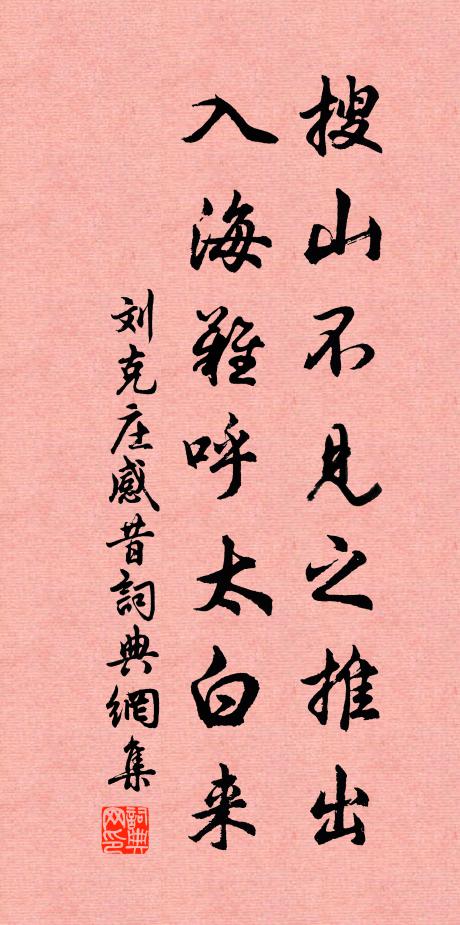 搜山不见之推出
入海难呼太白来
刘克庄感昔詞典網集
詞典网印